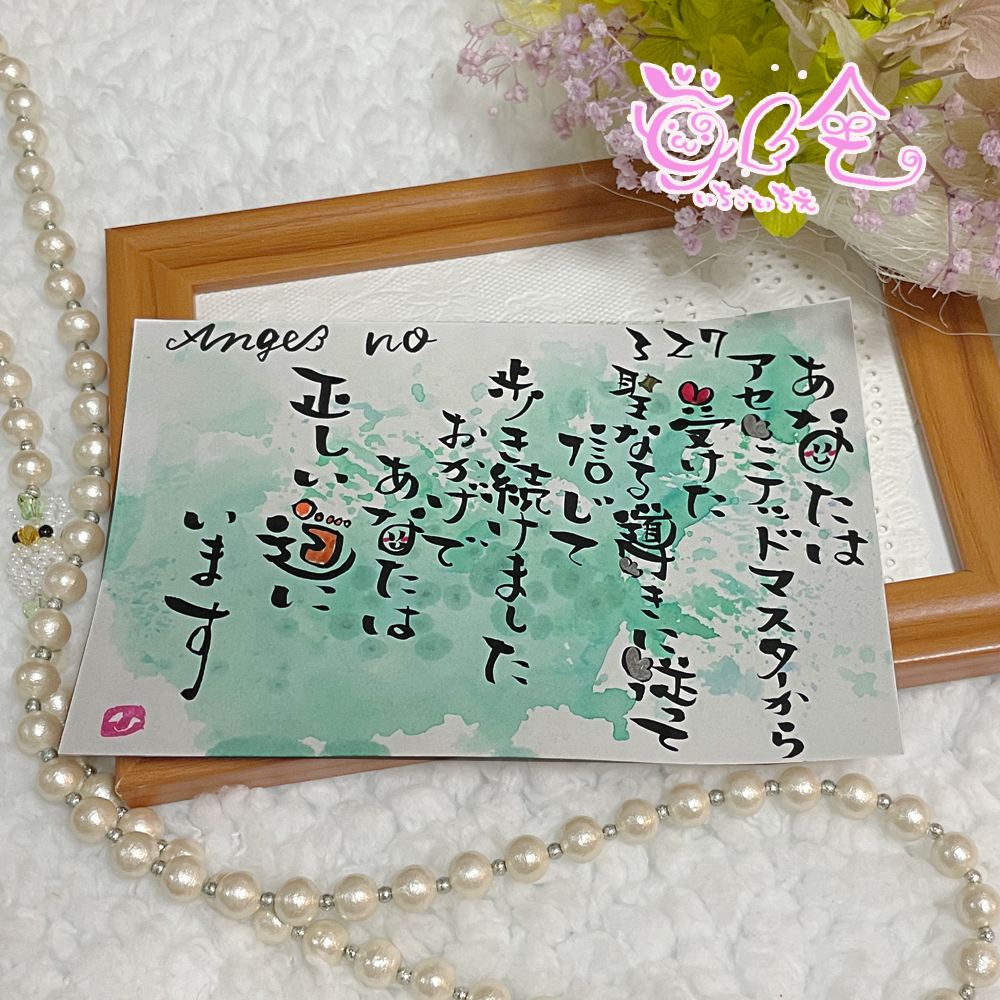 Angel no
327
あなたは
アセンデッドマスターから
受けた
聖なる導きに従って
信じて
歩き続けました
おかげで
あなたは
正しい道に
います
いちごいちえ